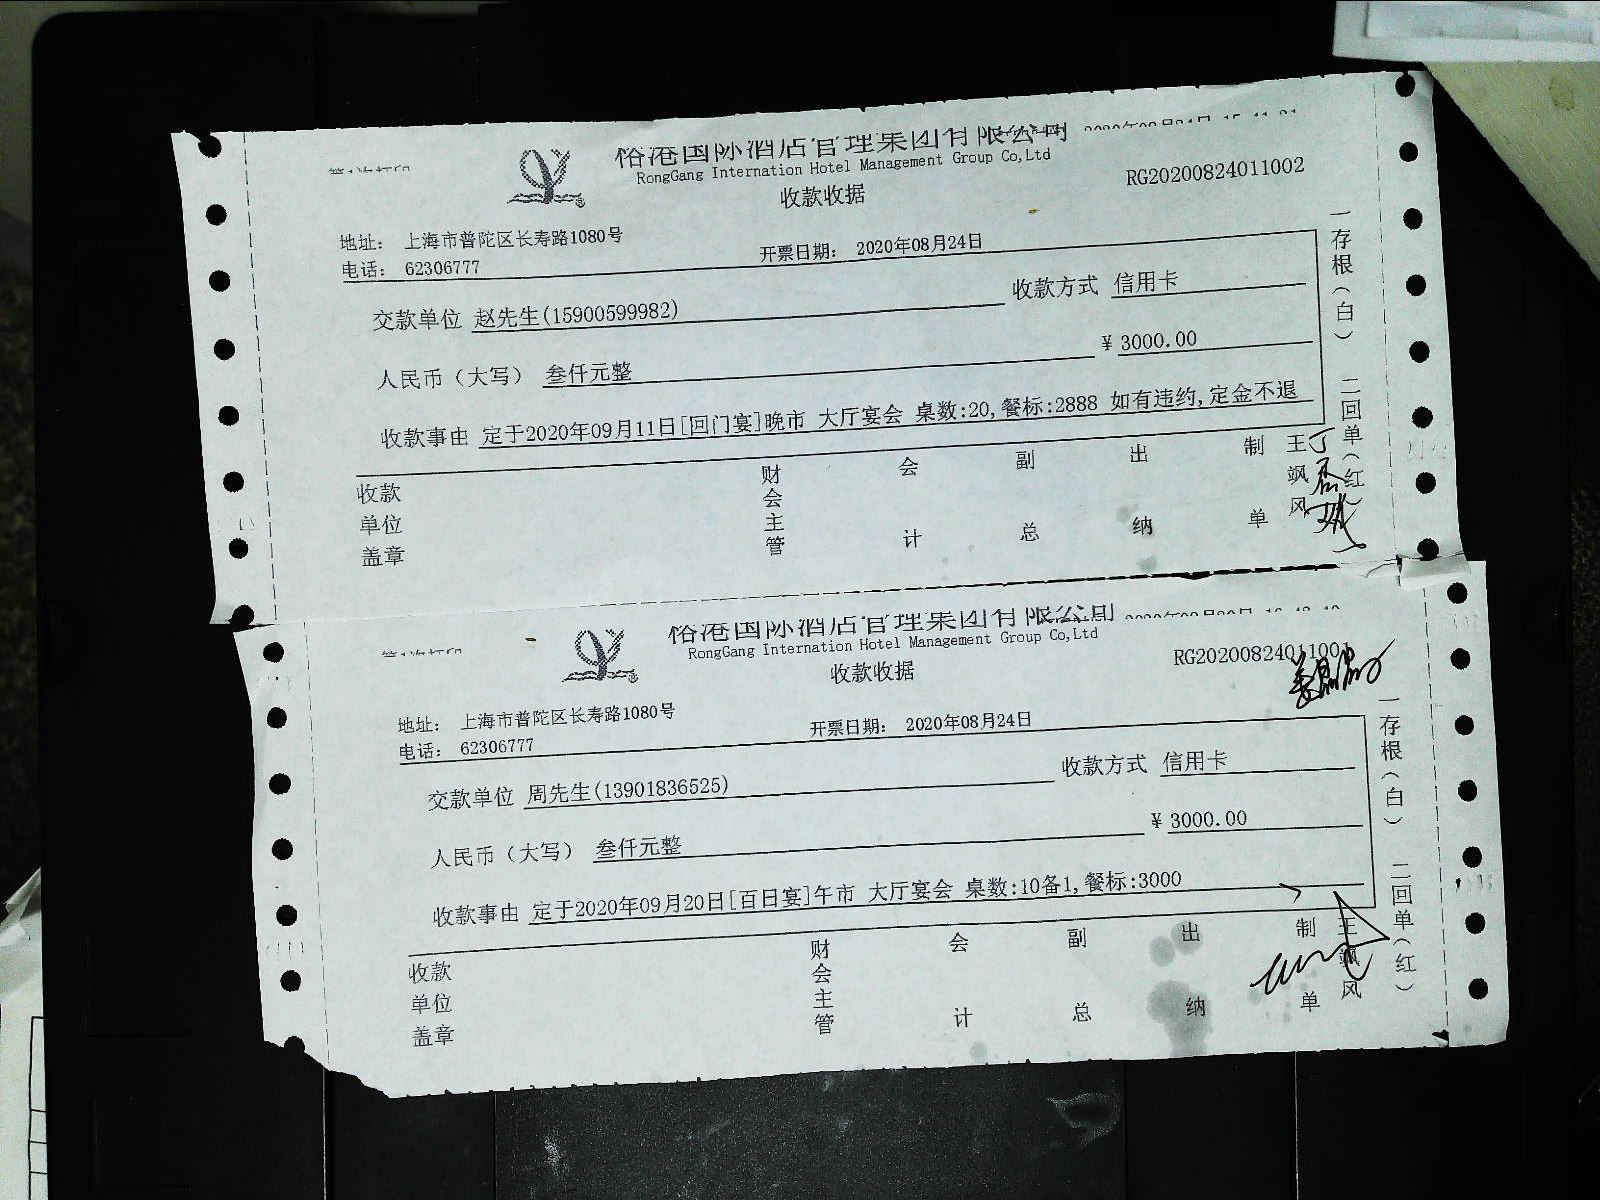 裕港国际酒店管理集团有限公司
RongGang Internation Hotel Management Group Co,Ltd
收款收据
RG20200824011002
地址： 上海市普陀区长寿路1080号
电话： 62306777
开票日期： 2020年08月24日
交款单位 赵先生(15900599982)
收款方式 信用卡
人民币（大写） 叁仟元整
¥ 3000.00
收款事由 定于2020年09月11日[回门宴]晚市 大厅宴会 桌数:20,餐标:2888 如有违约,定金不退
收款单位盖章
财会主管
会计
副总
出纳
制单
王飒风
一存根（白）
二回单（红）
裕港国际酒店管理集团有限公司
RongGang Internation Hotel Management Group Co,Ltd
收款收据
RG20200824011001
地址： 上海市普陀区长寿路1080号
电话： 62306777
开票日期： 2020年08月24日
交款单位 周先生(13901836525)
收款方式 信用卡
人民币（大写） 叁仟元整
¥ 3000.00
收款事由 定于2020年09月20日[百日宴]午市 大厅宴会 桌数:10备1,餐标:3000
收款单位盖章
财会主管
会计
副总
出纳
制单
王飒风
一存根（白）
二回单（红）